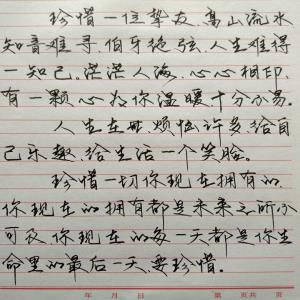 珍惜一位挚友,高山流水
知音难寻,伯牙绝弦,人生难得
一知己。茫茫人海,心心相印,
有一颗心为你温暖十分不易。
人生在世,烦恼许多,给自
己乐趣,给生活一个笑脸。
珍惜一切你现在拥有的,
你现在的拥有都是未来之所不
可及,你现在的每一天都是你生
命里的最后一天,要珍惜。
年 月 日 第 页共 页